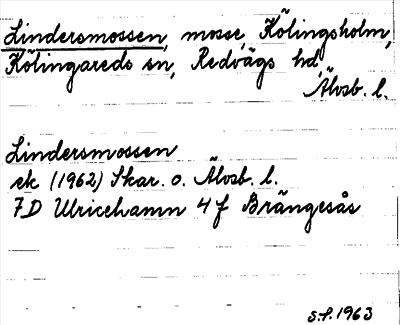 Lindersmossen, mosse, Kölingsholm,
Kölingareds sn, Redvägs hd,
Älvsb. l.
Lindersmossen
ek (1962) Skar. o. Älvsb. l.
7D Ulricehamn 4f Brängesås
S.F. 1963